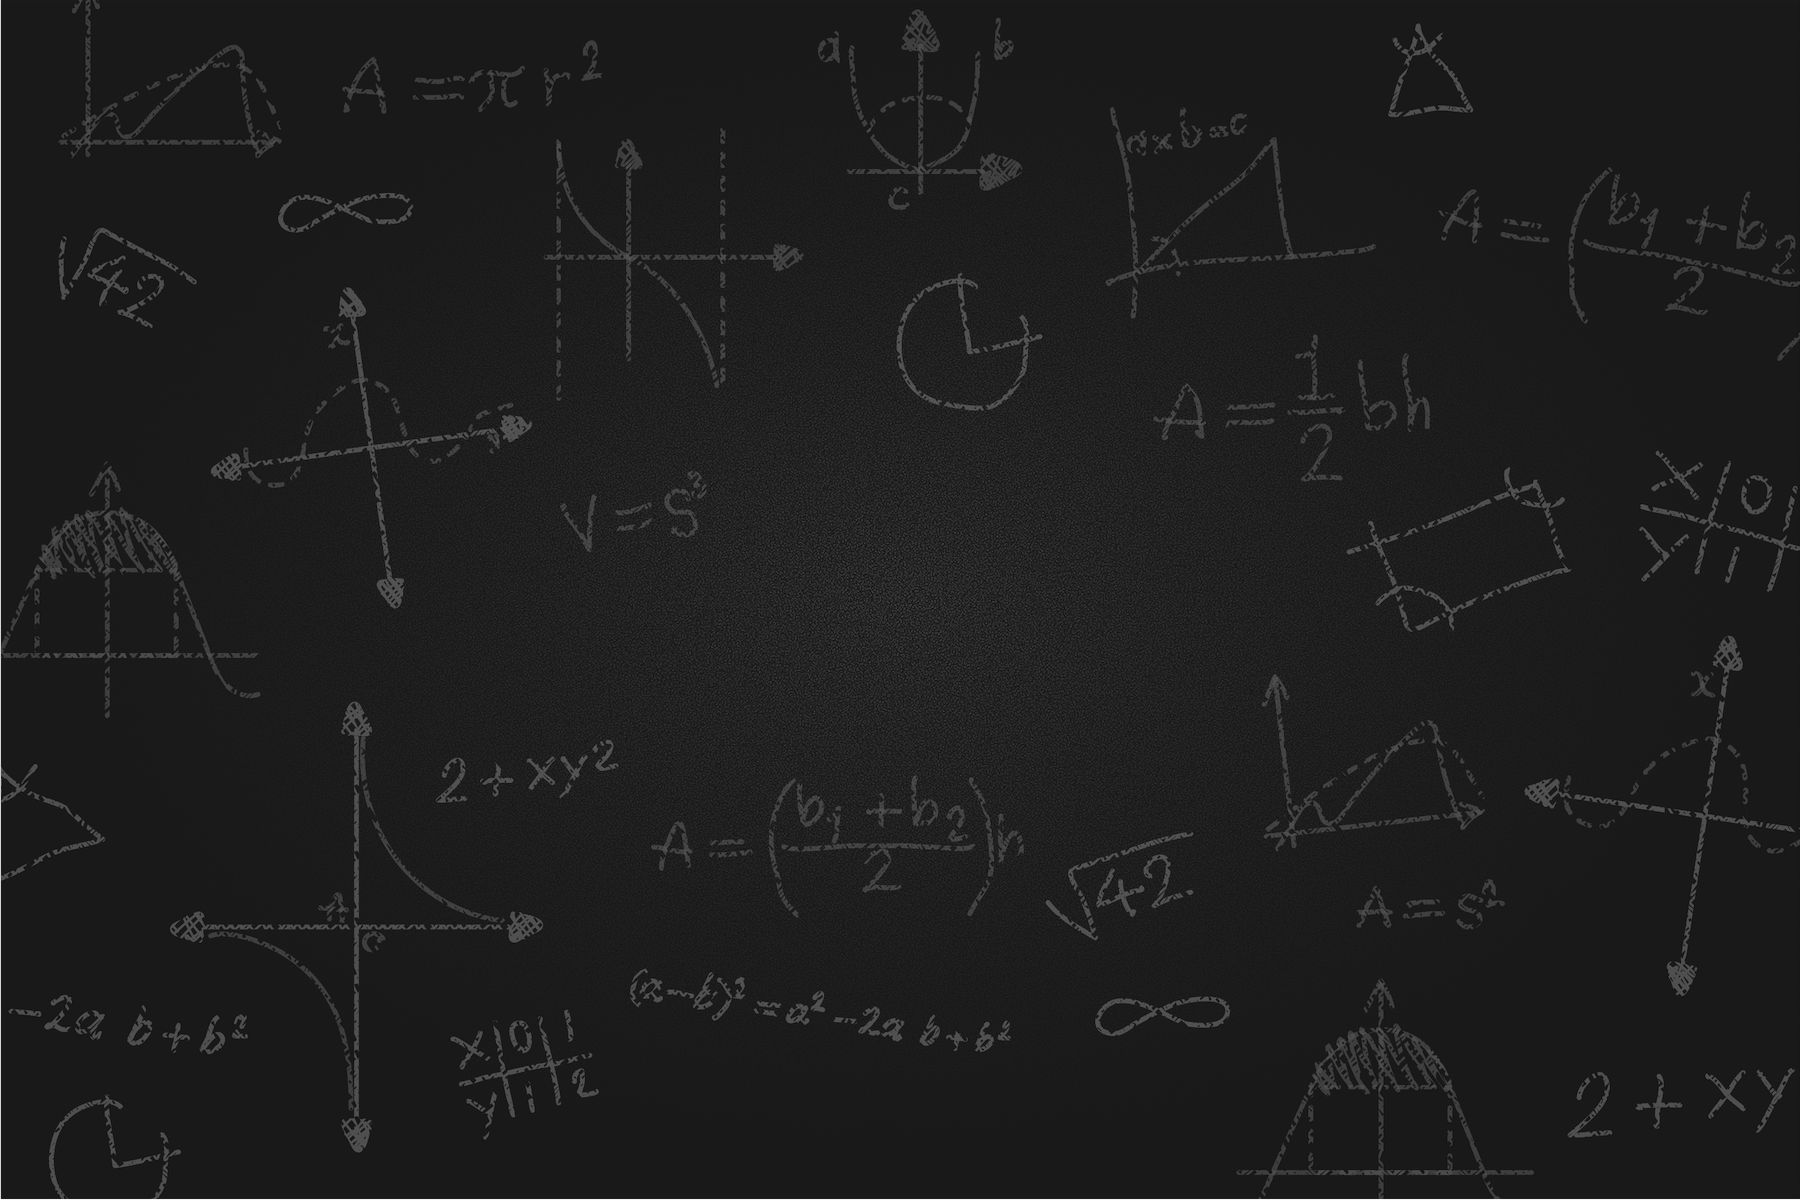 A = π r²
a b
c
a×b=c
A = (b₁ + b₂
2
√42
∞
x
A = 1/2 bh
V = S³
X 0
Y 1
x
2 + xy²
A = (b₁ + b₂ / 2)h
√42.
A = S²
c
-2a b + b²
(a-b)² = a² -2a b + b²
∞
X 0 1
Y 1 2
2 + xy